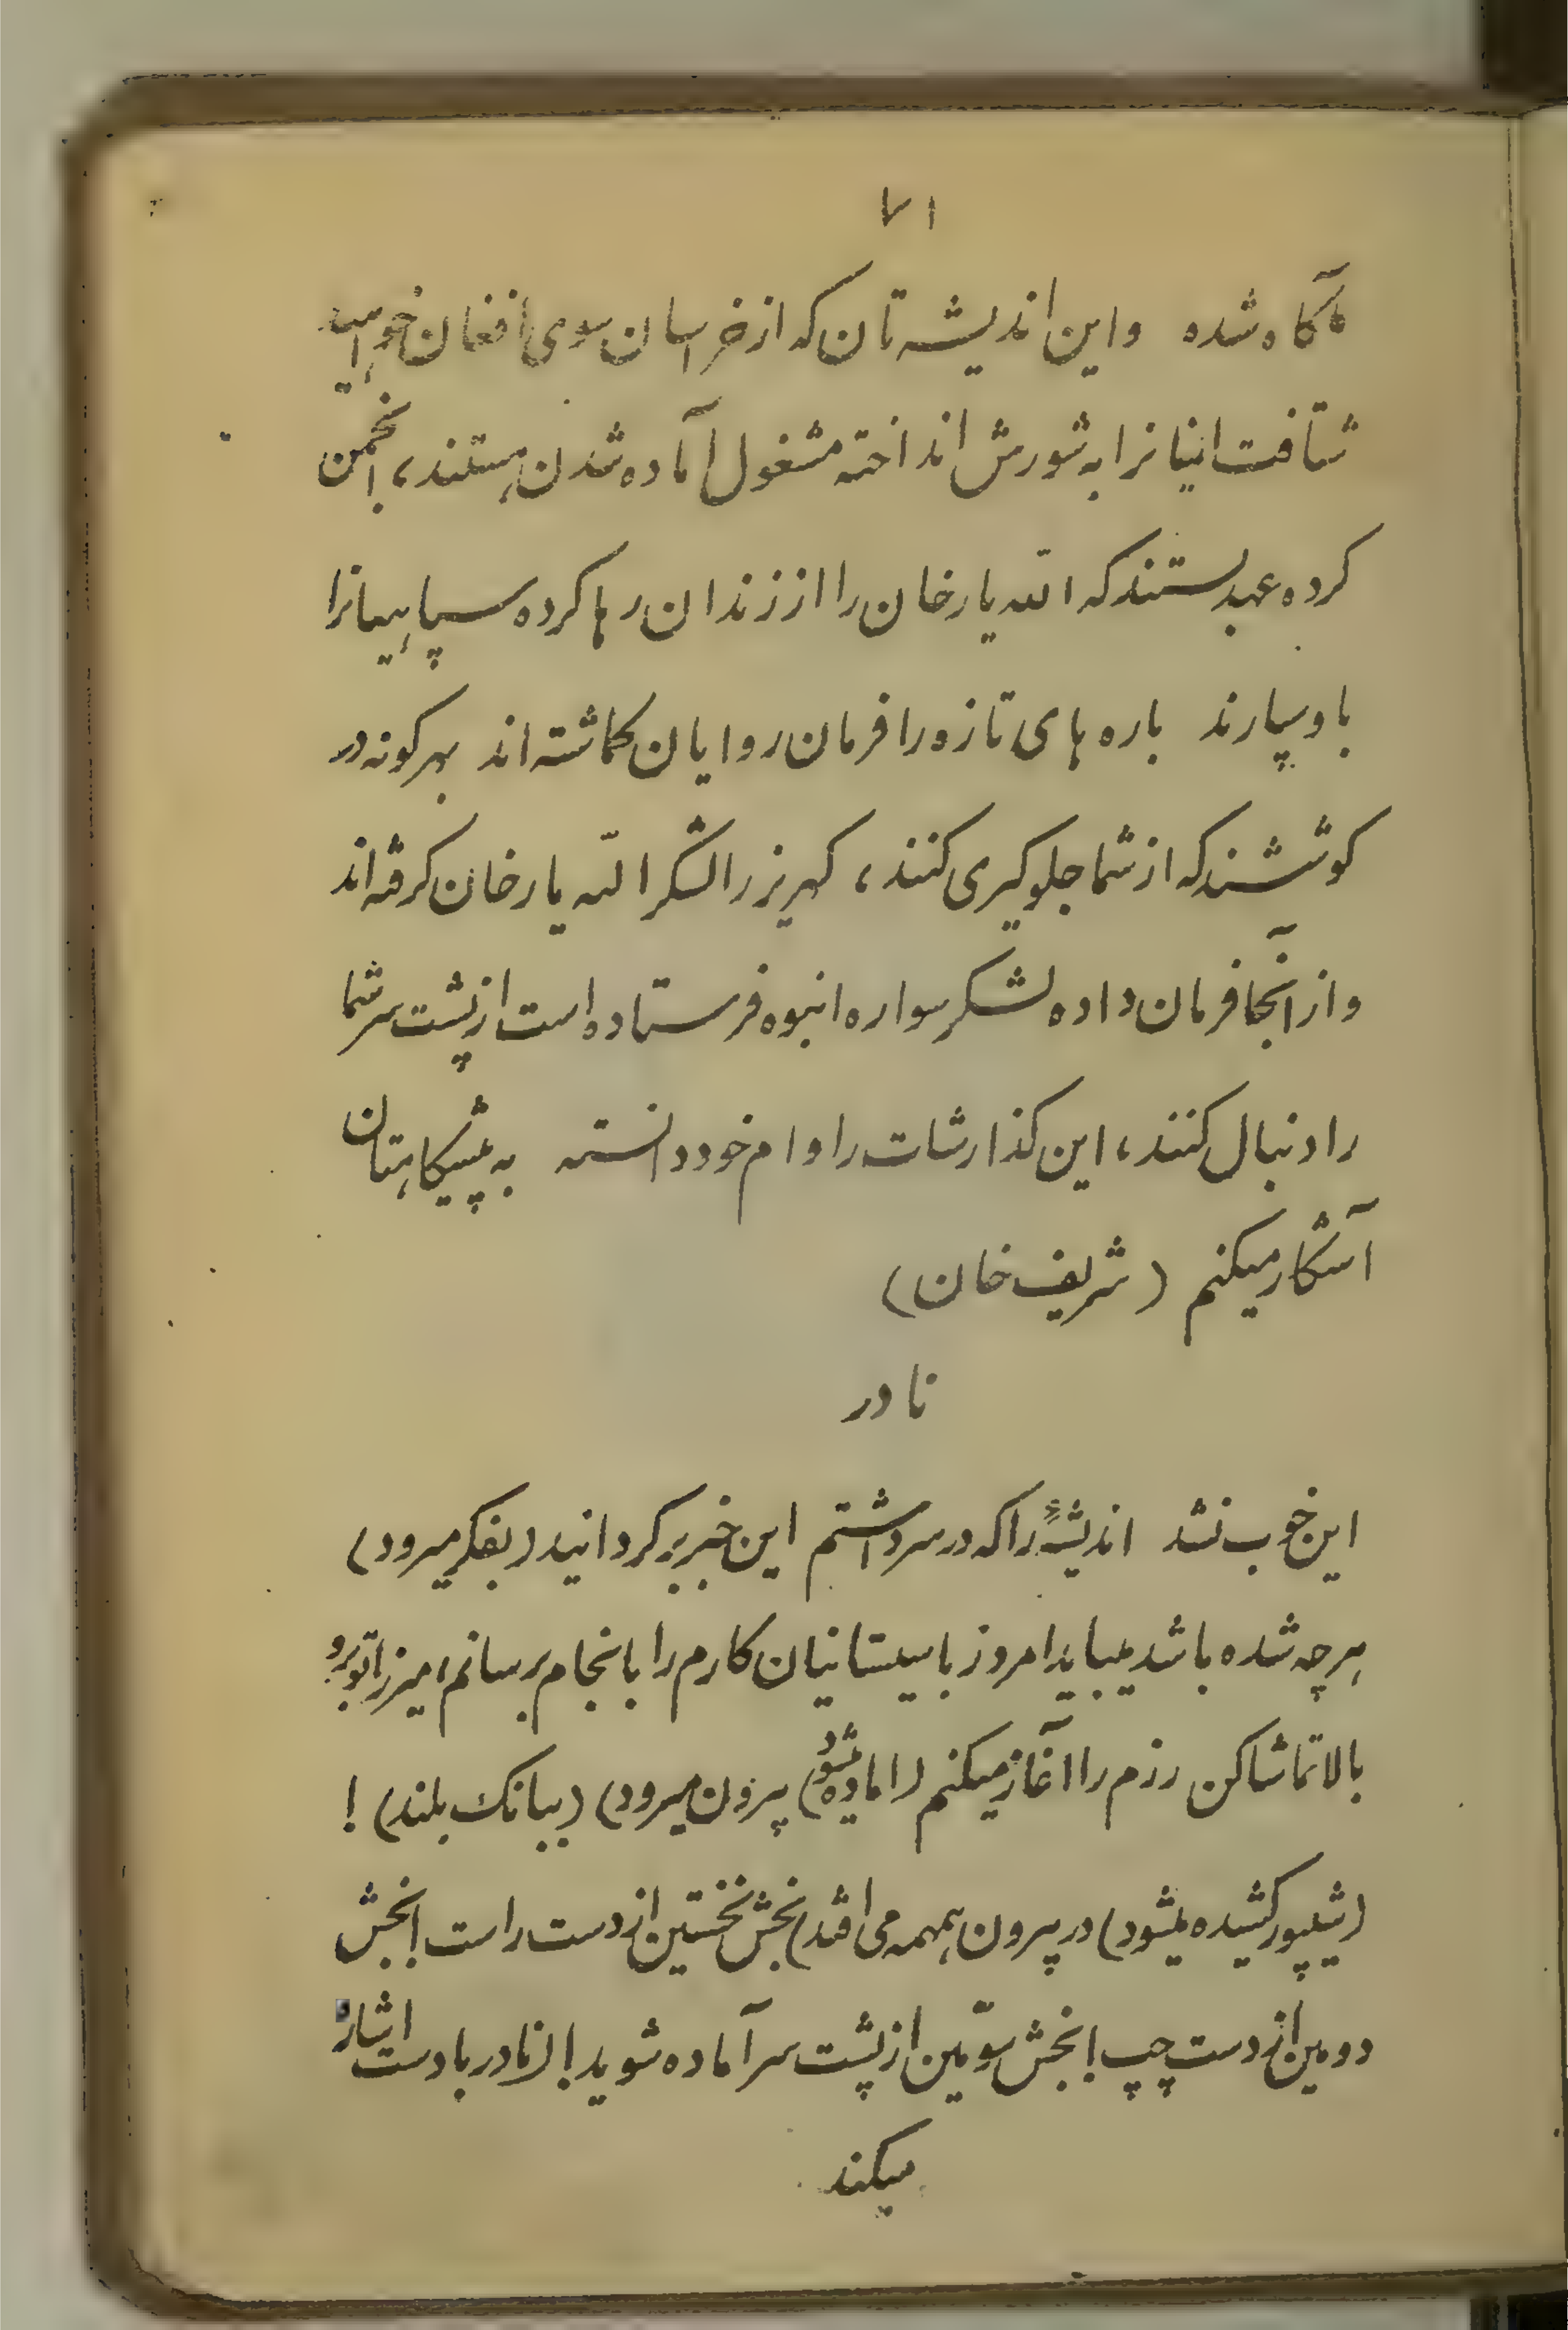 ۷۱
آگاه شده واین اندیشه تان که از خراسان سوی افغان خواهید
شتافت اینانرا به شورش انداخته مشغول آماده شدن هستند، انجمن
کرده عهد بستند که الله یار خان را از زندان رها کرده سپاهیانرا
باو سپارند باره های تازه را فرمان روایان گماشته اند بهر گونه در
کوششند که از شما جلوگیری کنند، کهریز را لشگر الله یار خان گرفته اند
واز آنجا فرمان داده لشگر سواره انبوه فرستاده است از پشت سر شما
را دنبال کنند، این گذارشات را وام خود دانسته به پیشگاهتان
آشگار میکنم (شریف خان)
نادر
این خوب نشد اندیشهٔ را که در سر داشتم این خبر برگردانید (بفکر میرود)
هرچه شده باشد میباید امروز با سیستانیان کارم را بانجام برسانم، میرزا تو برو
بالا تماشا کن رزم را آغاز میکنم (اماده میشود) (بیرون میرود) (ببانگ بلند) !
(شیپور کشیده میشود) در بیرون همهمه می افتد) بخش نخستین از دست راست! بخش
دومین از دست چپ! بخش سوّمین از پشت سر آماده شوید! (نادر با دست اشاره
میکند